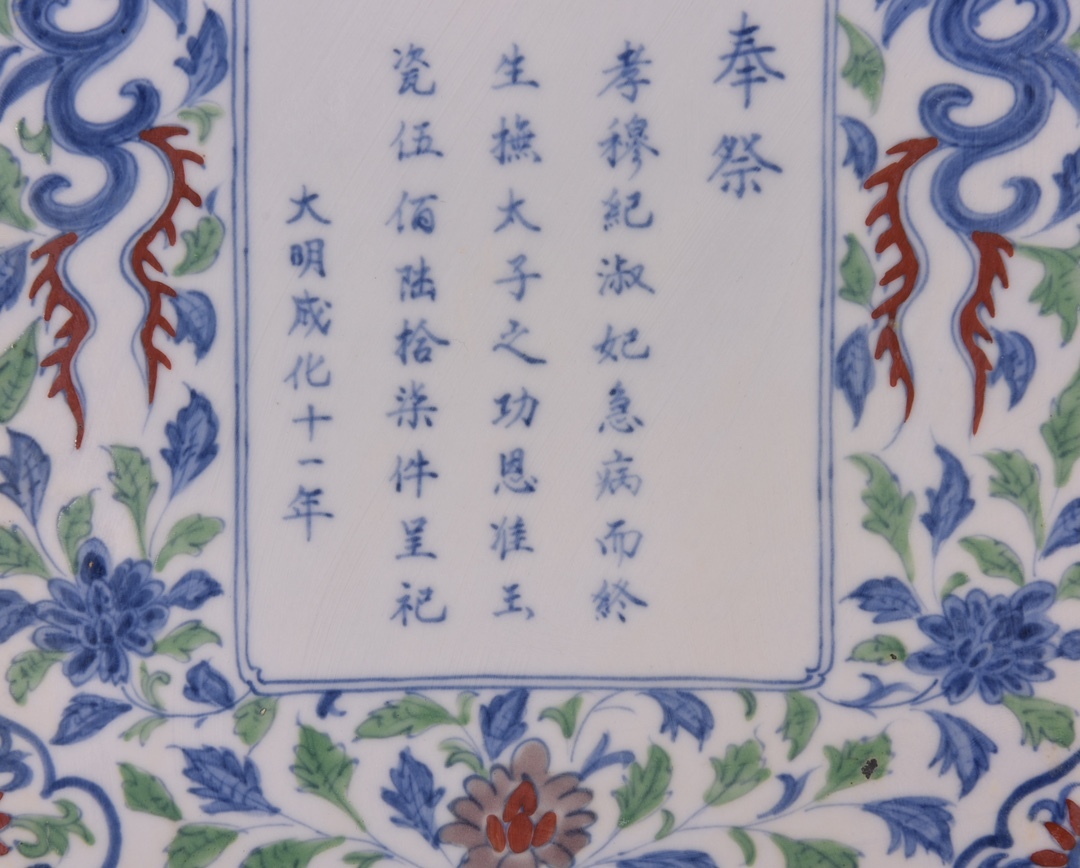 奉祭
孝穆紀淑妃急病而終
生撫太子之功恩准玉
瓷伍佰陆拾柒件呈祀
大明成化十一年